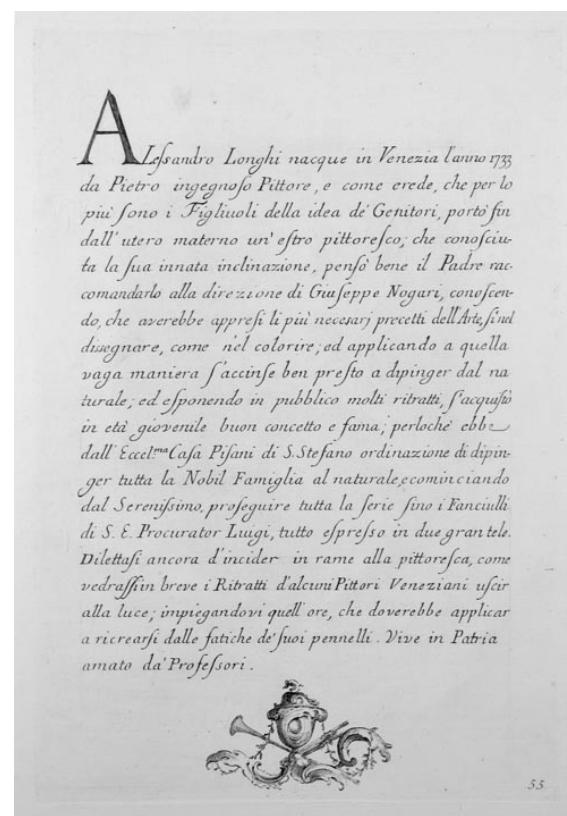 ALeſsandro Longhi nacque in Venezia l'anno 1733
da Pietro ingegnoſo Pittore, e come erede, che per lo
più ſono i Figliuoli della idea de' Genitori, portò fin
dall' utero materno un' eſtro pittoreſco; che conoſciu-
ta la ſua innata inclinazione, penſò bene il Padre rac-
comandarlo alla direzione di Giuſeppe Nogari, conoſcen-
do, che averebbe appreſi li più necesarj precetti dell'Arte, ſi nel
dissegnare, come nel colorire; ed applicando a quella
vaga maniera ſ'accinſe ben preſto a dipinger dal na
turale; ed eſponendo in pubblico molti ritratti, ſ'acquiſtò
in età giovenile buon concetto e fama; perlochè ebbe
dall' Eccel.ma Caſa Piſani di S. Stefano ordinazione di dipin-
ger tutta la Nobil Famiglia al naturale, e cominciando
dal Sereniſsimo, proſeguire tutta la ſerie ſino i Fanciulli
di S. E. Procurator Luigi, tutto eſpreſso in due gran tele.
Dilettaſi ancora d'incider in rame alla pittoreſca, come
vedraſſi in breve i Ritratti d'alcuni Pittori Veneziani uſcir
alla luce; impiegandovi quell' ore, che doverebbe applicar
a ricrearſi dalle fatiche de' ſuoi pennelli. Vive in Patria
amato da' Profeſsori.
55